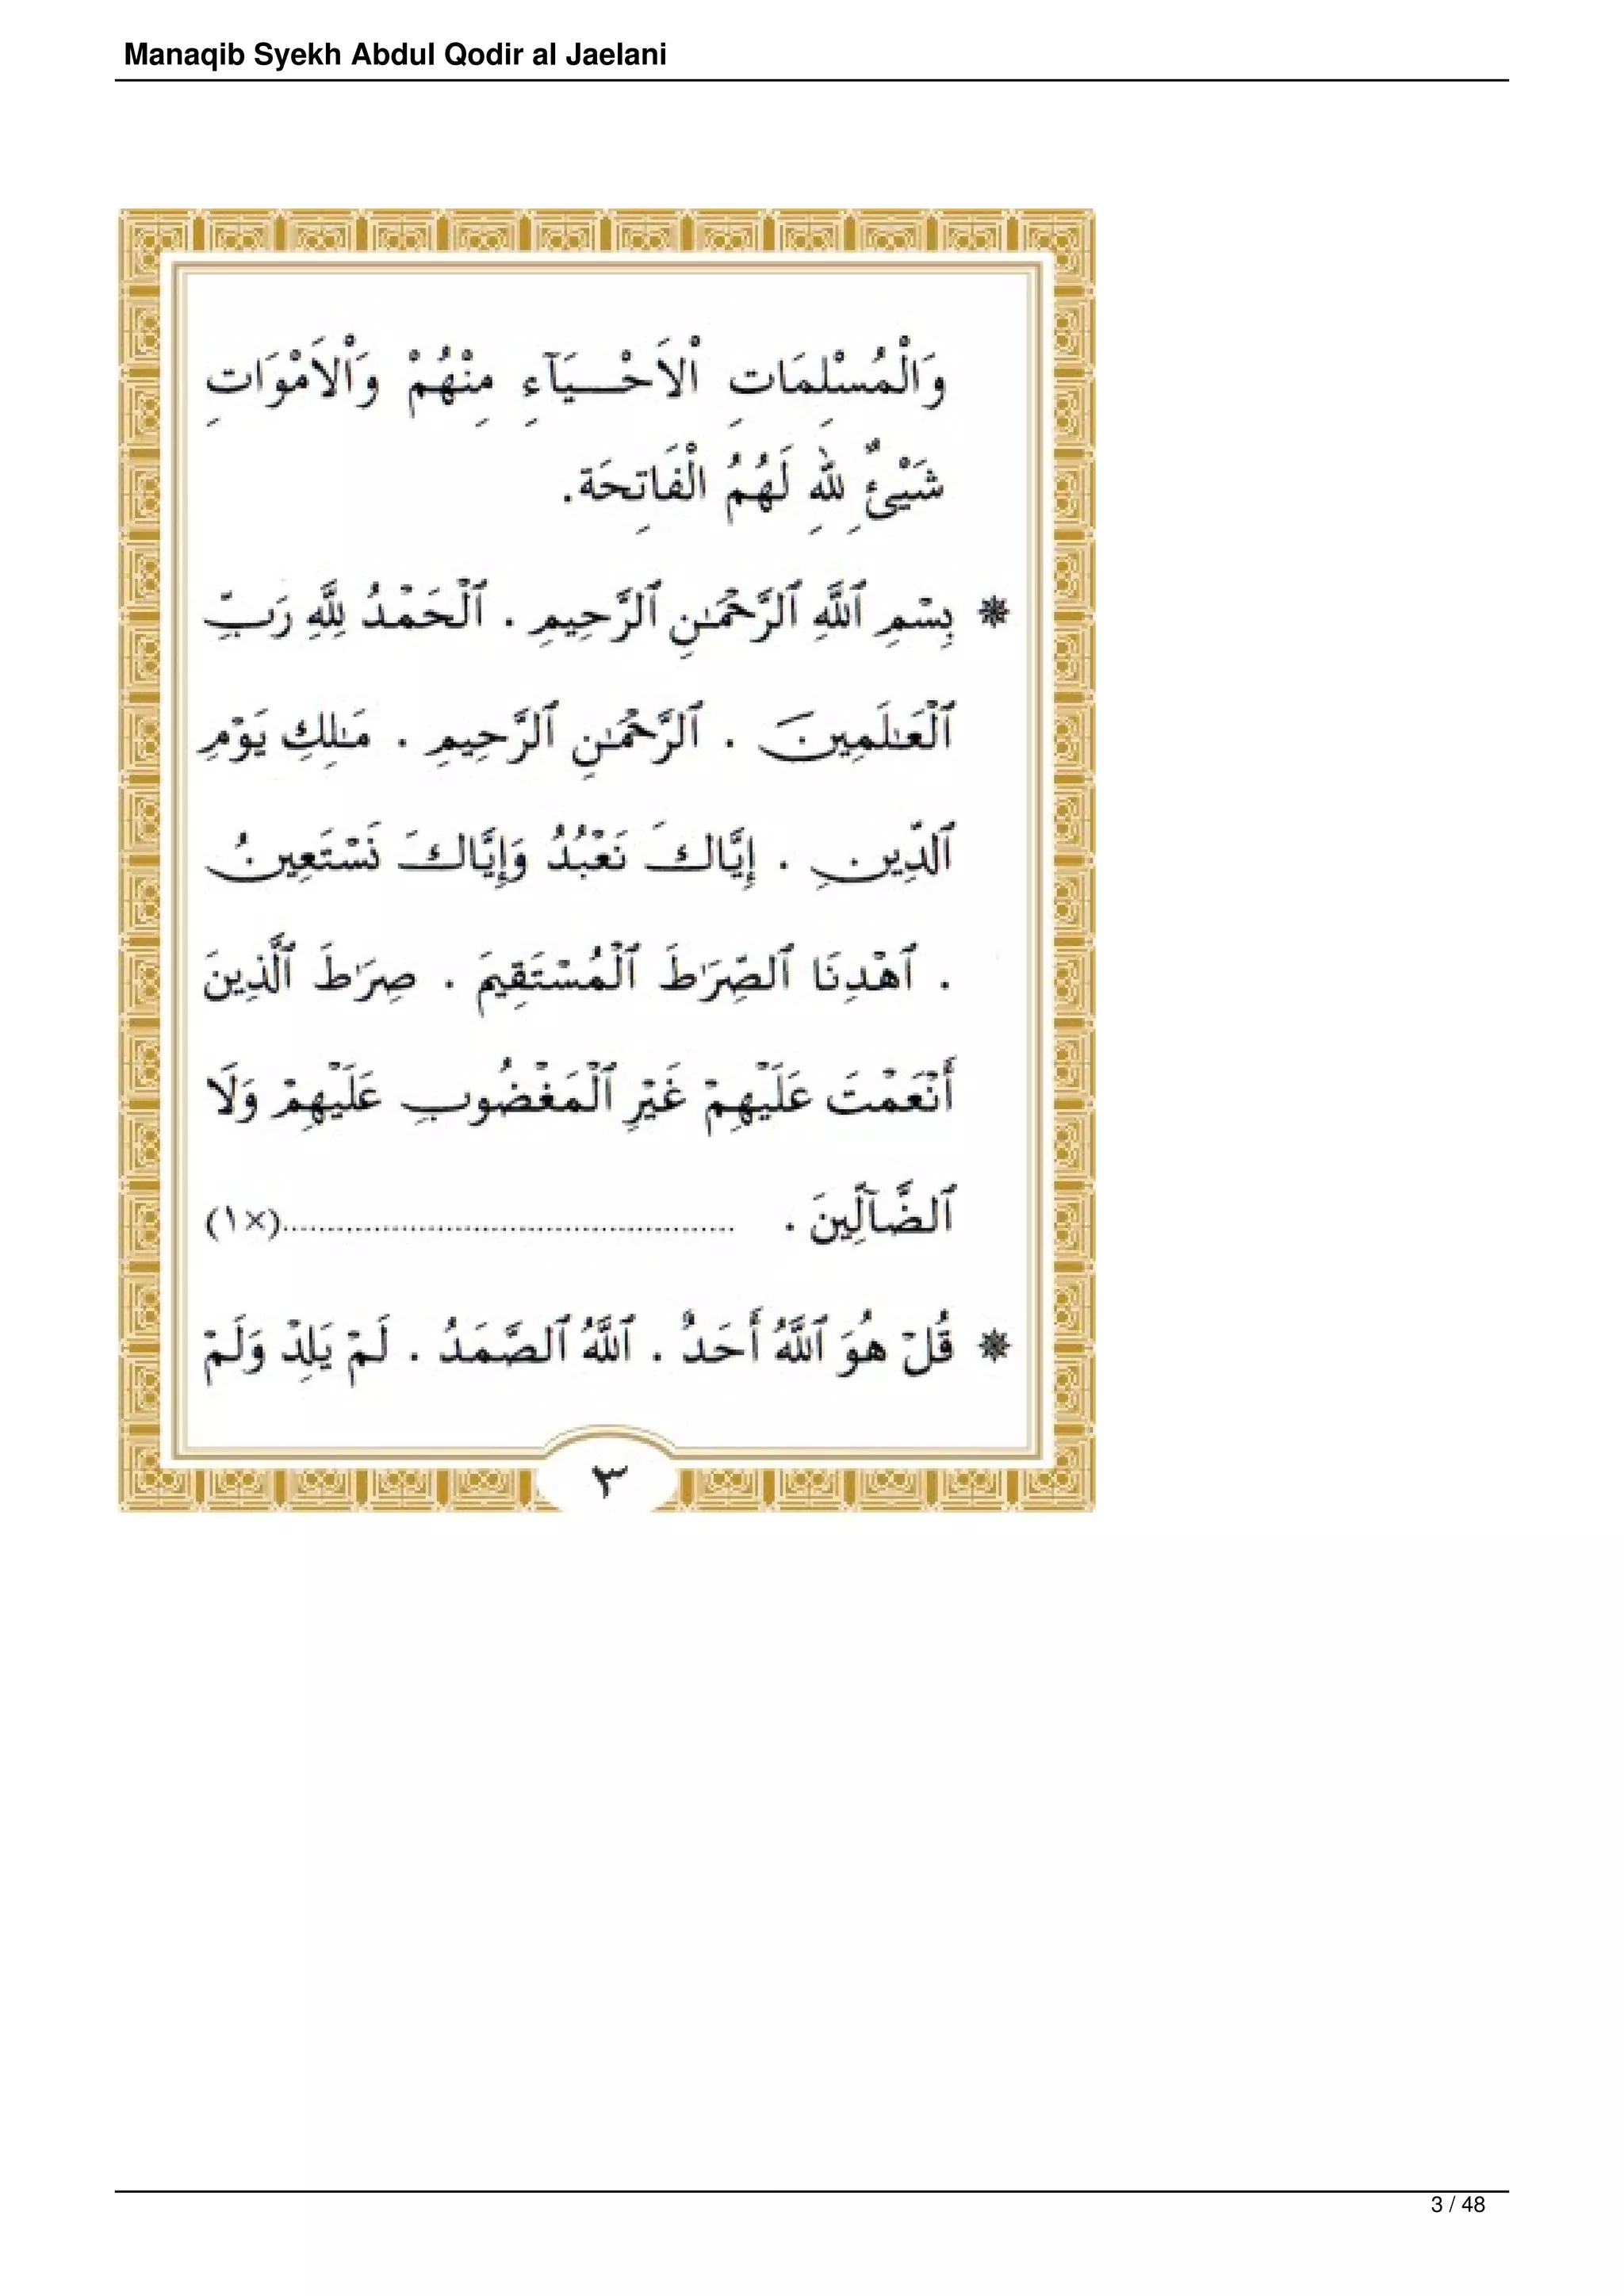 Manaqib Syekh Abdul Qodir al Jaelani
وَالْمُسْلِمَاتِ الْاَحْـــيَآءِ مِنْهُمْ وَالْاَمْوَاتِ
شَيْئٌ لِلّٰهِ لَهُمُ الْفَاتِحَة.
❋ بِسْمِ ٱللَّهِ ٱلرَّحْمَٰنِ ٱلرَّحِيمِ . ٱلْحَمْدُ لِلَّهِ رَبِّ
ٱلْعَٰلَمِينَ . ٱلرَّحْمَٰنِ ٱلرَّحِيمِ . مَٰلِكِ يَوْمِ
ٱلدِّينِ . إِيَّاكَ نَعْبُدُ وَإِيَّاكَ نَسْتَعِينُ
. ٱهْدِنَا ٱلصِّرَٰطَ ٱلْمُسْتَقِيمَ . صِرَٰطَ ٱلَّذِينَ
أَنْعَمْتَ عَلَيْهِمْ غَيْرِ ٱلْمَغْضُوبِ عَلَيْهِمْ وَلَا
ٱلضَّآلِّينَ . ..................................................(×١)
❋ قُلْ هُوَ ٱللَّهُ أَحَدٌ . ٱللَّهُ ٱلصَّمَدُ . لَمْ يَلِدْ وَلَمْ
٣
3 / 48